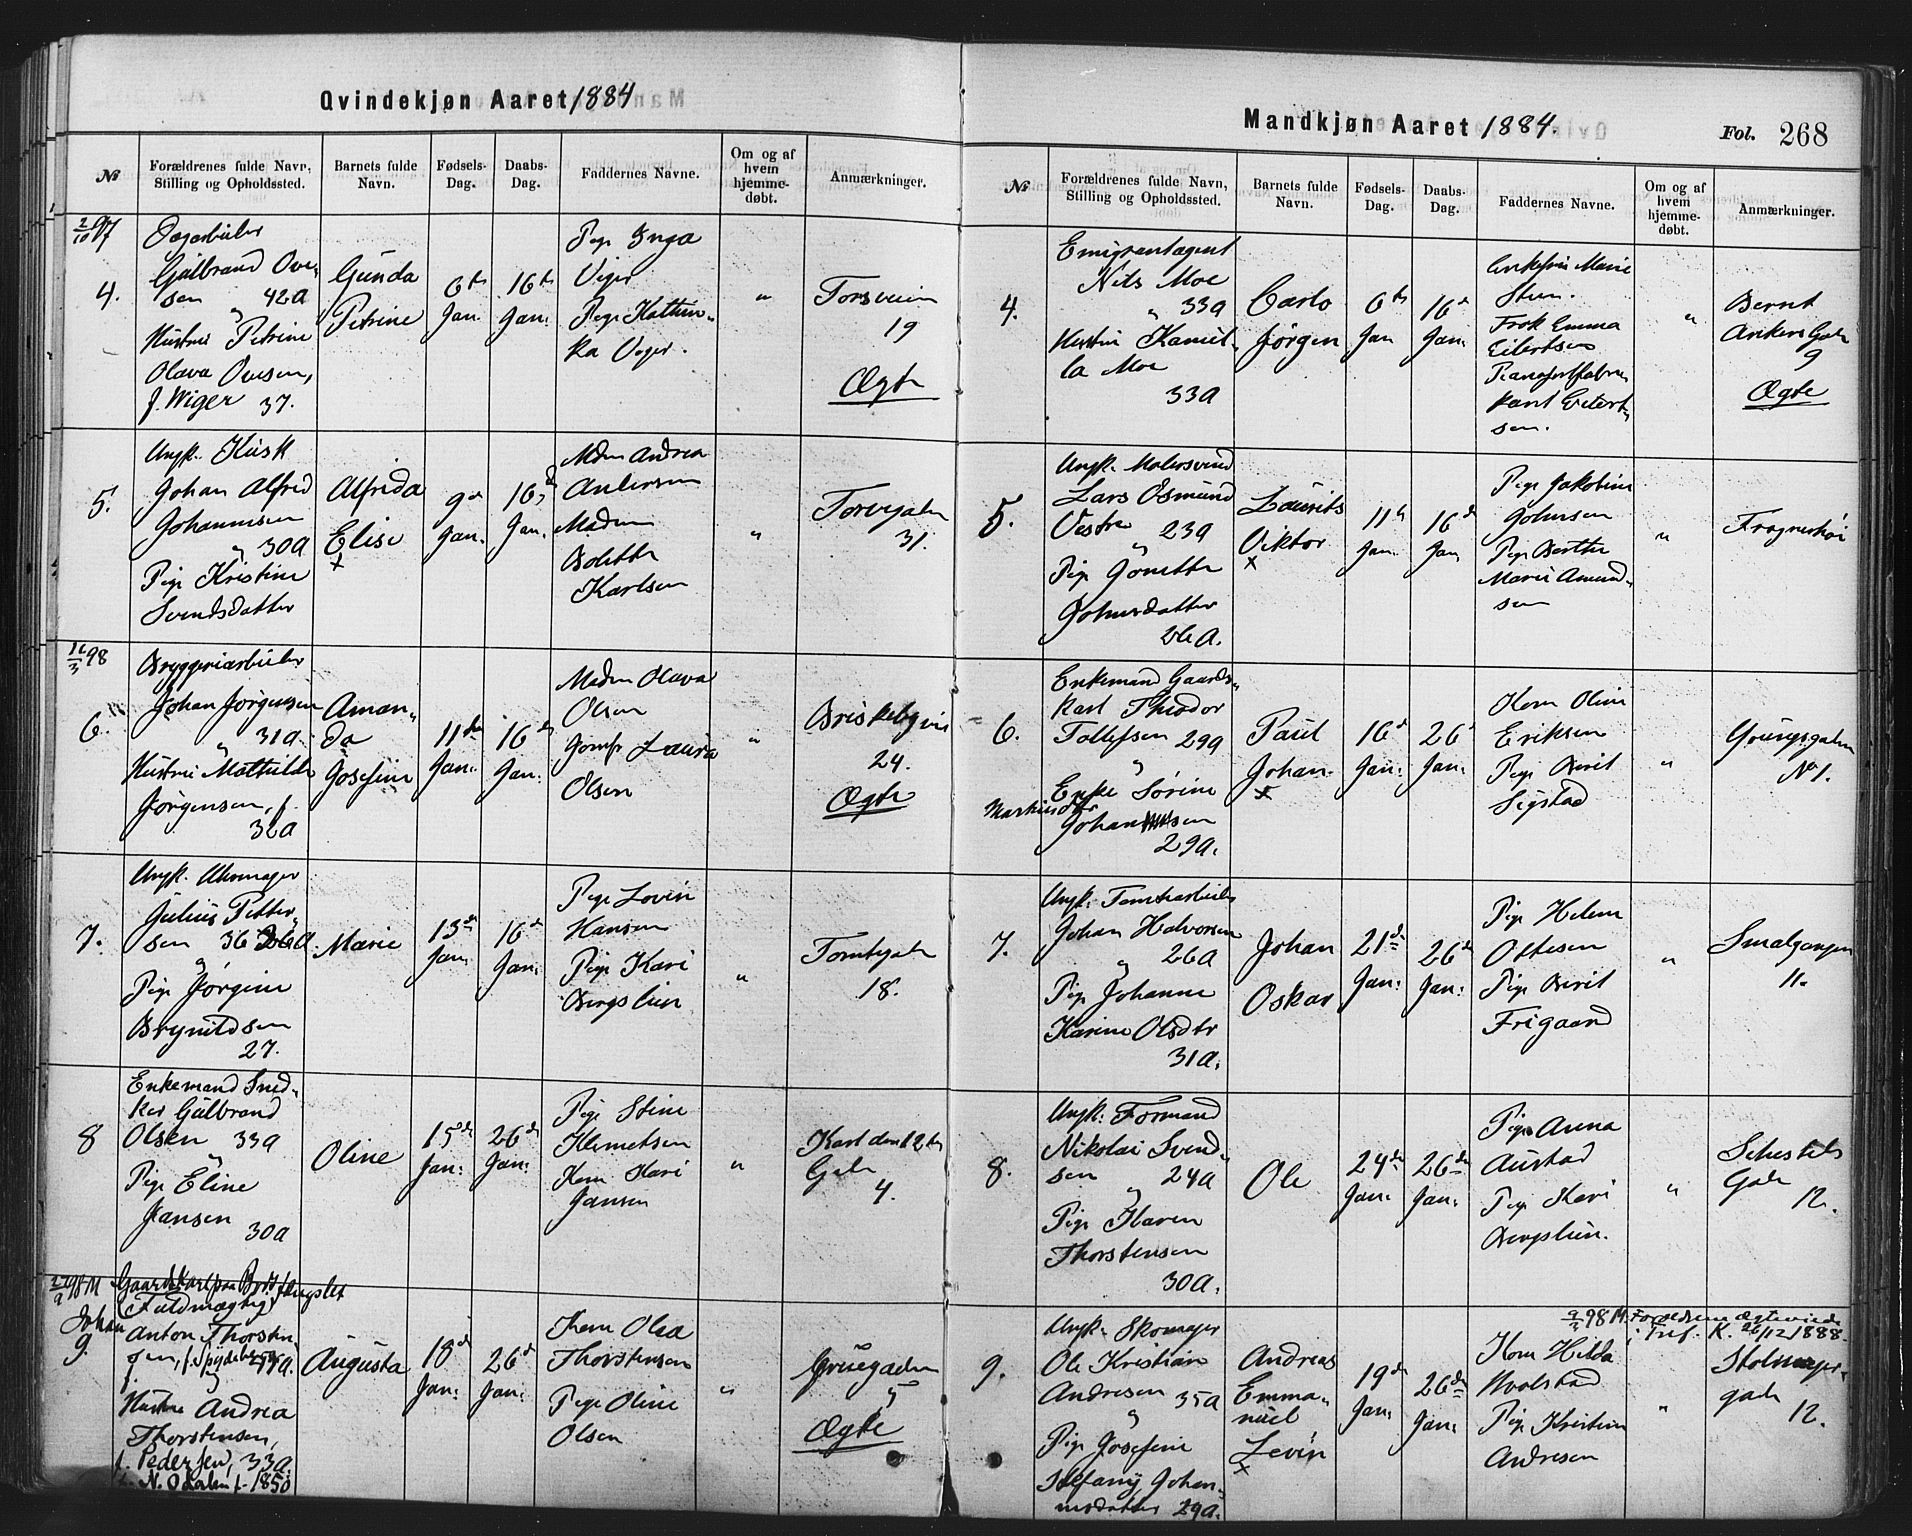 Qvindekjøn Aaret 1884
№
Forældrenes fulde Navn,
Stilling og Opholdssted.
Barnets fulde
Navn.
Fødsels-
Dag.
Daabs-
Dag.
Faddernes Navne.
Om og af
hvem
hjemme-
døbt.
Anmærkninger.
4.
Gulbrand Ove-
sen 42 a
og
Hustru Petrine
Olava Ovesen,
f. Wiger 37.
Gunda
Petrine
6te
Jan.
16de
Jan.
Pige Inga
Viger
Pige Kathin-
ka Viger.
"
Torsveien
19
Ægte
5.
Ungk. Kusk
Johan Alfred
Johannesen
og 30 a
Pige Kristine
Svendsdatter
Alfrida
Elise
x
9de
Jan.
16de
Jan.
Mdm Andrea
Andersen
Madm
Bolette
Karlsen
"
Torvegaden
31.
16/3 98
6.
Bryggeriarbeider
Johan Jørgensen
og 31 a
Hustru Mathilde
Jørgensen, f.
32 a
Aman-
da
Josefine
11de
Jan.
16de
Jan.
Madm Olava
Olsen
Jomfr Laura
Olsen
"
Briskebyvei
24.
Ægte
7.
Ungk. Uhrmager
Julius Petter-
sen 36
og
Pige Jørgine
Brynildsen
27.
Marie
13de
Jan.
16de
Jan.
Pige Lovise
Hansen
Pige Kari
Bergslien
"
Tomtegaden
18.
8
Enkemand Sned-
ker Gulbrand
Olsen 33 a
og
Pige Eline
Jansen
30 a
Oline
15de
Jan.
26de
Jan.
Pige Stine
Klemetsen
Kone Kari
Jansen
"
Karl den 12tes
Gade
4.
98 M
Gaardskarl paa Bodsfængslet
(Fuldmægtig)
Johan
9.
Anton Thorsten-
sen, f. Spydeberg
og
Hustru Andrea
Thorstensen,
f. Pedersen, 33 a.
f. N. Odalen f. 1850
Augusta
18de
Jan.
26de
Jan.
Kone Olea
Thorstensen
Pige Oline
Olsen
"
Gruegaden
5
Ægte
Mandkjøn Aaret 1884.
Fol. 268
№
Forældrenes fulde Navn,
Stilling og Opholdssted.
Barnets fulde
Navn.
Fødsels-
Dag.
Daabs-
Dag.
Faddernes Navne.
Om og af
hvem
hjemme-
døbt.
Anmærkninger.
4.
Emigrantagent
Nils Moe
og 33 a
Hustru Kamil-
la Moe
33 a
Carlo
Jørgen
6te
Jan
16de
Jan.
Enkefru Marie
Steen.
Frøk Emma
Eilertsen
Pianofortfabri-
kant Eilert-
sen.
"
Bernt
Ankers Gade
9
Ægte
5.
Ungk. Malersvend
Lars Osmund
Vestre 23 a
og
Pige Jonette
Johnsdatter
26 a.
Laurits
Viktor
x
11te
Jan.
16de
Jan
Pige Jakobine
Johnsen
Pige Berthe
Marie Amund-
sen
"
Frognerhøi
6.
Enkemand Gaards-
karl Theodor
Tollefsen 29 a
og
Enke Sørine
Markusdtr
Johannesen
29 a.
Paul
Johan
x
16de
Jan.
26de
Jan.
Kone Oline
Eriksen
Pige Berit
Sigstad
"
Youngsgaden
№ 1.
7.
Ungk. Tomtearbeider
Johan Halvorsen
og 26 a
Pige Johanne
Karine Olsdtr
31 a.
Johan
Oskar
21de
Jan.
26de
Jan.
Pige Helene
Ottesen
Pige Berit
Frigaard
"
Smalgangen
11.
8.
Ungk. Formand
Nikolai Svend-
sen 24 a
og
Pige Karen
Thorstensen
30 a.
Ole
24de
Jan.
26de
Jan.
Pige Anna
Austad
Pige Kari
Bergslien.
"
Sehesteds
Gade
12.
98 M. Forældrene ægteviede
i Tref. K. 26/12 1888.
9.
Ungk. Skomager
Ole Kristian
Andresen 35 a
og
Pige Josefine
Stefany Johan-
nesdatter 29 a.
Andreas
Emma-
nuel
Levin
x
19de
Jan.
26de
Jan.
Kone Hilda
Hvalstad
Pige Kristine
Andresen
"
Stolmager-
gade
12.